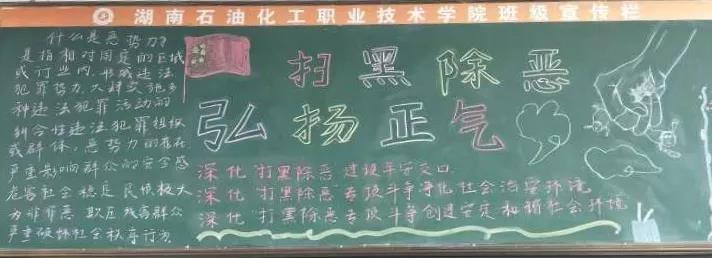 湖南石油化工职业技术学院班级宣传栏
什么是恶势力?
是指相对固定的区域
或行业内,形成违法
犯罪势力,大肆实施多
种违法犯罪活动的
纠合性违法犯罪组织
或群体,恶势力的存在
严重影响群众的安全感
危害社会稳定
为非作恶 欺压残害群众
严重破坏社会秩序行为
扫黑除恶
弘扬正气
深化"打黑除恶"建设平安
深化"打黑除恶"专项斗争净化社会治安环境
深化"打黑除恶"专项斗争创造安定和谐社会环境